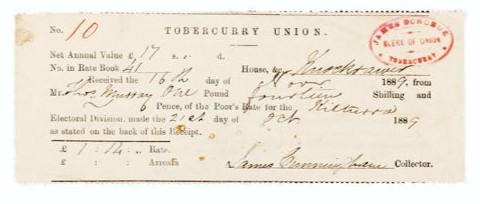 No. 10 TOBERCURRY UNION.
Net Annual Value £ 17 s. d.
No. in Rate Book 41 House, &c.
Received the 16th day of Nov 1889, from
Mr. Thos. Murray One Pound fourteen Shilling and
Pence, of the Poor's Rate for the Kilturra
Electoral Division, made the 21st day of Oct 1889
as stated on the back of this Receipt.
£ 1 : 14 : „ Rate.
£ : : Arrears James Cunningham Collector.
JAMES DONOHOE
CLERK OF UNION
TOBERCURRY